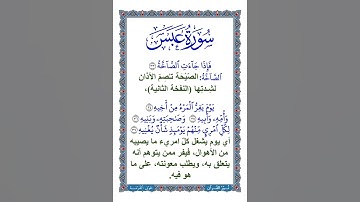 سُورَةُ عَبَسَ
فَإِذَا جَآءَتِ ٱلصَّآخَّةُ ٣٣
ٱلصَّآخَّةُ: الصَّيْحَةُ تنصمّ الآذان
لشدتها (النفخة الثانية)،
يَوْمَ يَفِرُّ ٱلْمَرْءُ مِنْ أَخِيهِ ٣٤
وَأُمِّهِۦ وَأَبِيهِ ٣٥ وَصَٰحِبَتِهِۦ وَبَنِيهِ ٣٦
لِكُلِّ ٱمْرِئٍ مِّنْهُمْ يَوْمَئِذٍ شَأْنٌ يُغْنِيهِ ٣٧
أي يوم يشغل كلّ امريء ما يصيبه
من الأهوال، فيفر ممن يتوهم أنه
يتعلق به، ويطلب معونته، على ما
هو فيه.